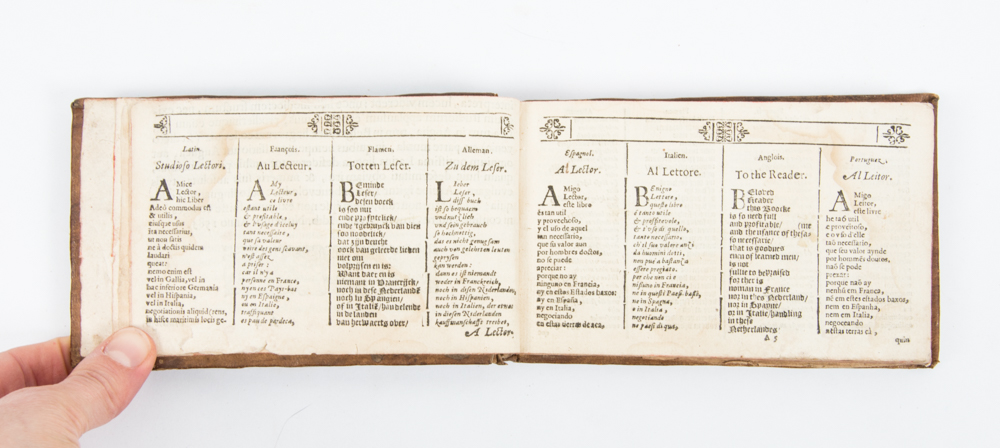 Latin.
Studioso Lectori.
AMice
Lector,
hic Liber
Adeò commodus est
& utilis,
eiusque usus
ita necessarius,
ut non satis
ne à doctis quidem
laudari
queat:
nemo enim est
vel in Gallia, vel in
hac inferiore Germania
vel in Hispania,
vel in Italia,
negotiationis aliquid
in hisce maritimis locis
François.
Au Lecteur.
AMy
Lecteur,
ce livre
estant utile
& profitable,
& l'usage d'iceluy
tant necessaire,
que sa valeur
n'est assez
a priser:
car il n'y a
personne en France,
ny en ces Pays-bas
ny en Espaigne,
ou en Italie,
trafiquant
Flamen.
Totten Leser.
BEminde
Leser/
desen boeck
is soo nut
ende profytelijck/
soo noodelijck/
niet om
volprysen en is:
Want daer en is
niemant in Vranckrijck/
noch in dese Nederlandē
noch in Spangien/
of in Italiē/ handelende
in de landen
van herwaerts over/
Alleman.
Zu dem Leser.
LIeber
Leser,
diß buch
ist so bequem
und nutzlich
und sein gebrauch
so hochnöttig,
das es nicht genugsam
auch von gelehrten leuten
gepriesen
kan werden:
dann es ist niemandt
weder in Franckreich,
noch in disen Niderlanden,
noch in Hispanien,
noch in Italien, der etwas
in diesen Niderlanden
kauffmanschafft treibet,
A Lector.
Espagnol.
Al Lector.
AMigo
Lector,
este libro
es tan util
y provechoso,
y el uso de aquel
tan necessario,
que su valor aun
por hombres doctos,
no se puede
apreciar:
porque no ay
ninguno en Francia,
ny en estos Estados baxos,
ny en España,
ny en Italia,
negociando
en estas tierras de aca,
Italien.
Al Lettore.
BEnigno
Lettore,
questo libro
è tanto utile
& proffittevole,
& l'uso di quello,
tanto necessario,
ch'el suo valore anzi
da huomini dotti,
non può a bastanza
essere pregiato:
per che non ci è
nissuno in Francia,
ne in questi Paesi bassi,
ne in Spagna,
o in Italia,
negotiando
ne paesi di quà,
Anglois.
To the Reader.
BEloved
Reader
this Boocke
is so need full
and profitable/
and the usance of thesame
so necessarie/
that is goodnes
even of learned men/
is not
fullie to be praised
for ther is
noman in France
nor in thes Nederland/
nor in Spayne/
or in Italie/ handling
in these
Netherlandes
A 3
Portuguez.
Al Leitor.
AMigo
Leitor,
este livre
he taõ util
e proveitoso,
e o vso d'elle
taõ necessario,
que seu valor aynde
por homẽs doutos,
naõ se pode
prezar:
porque naõ ay
nenhũ em Franca,
nẽ em estes estados baxos,
nem em Espanha,
nem em Italia,
negoceando
nestas terras cà,
quin